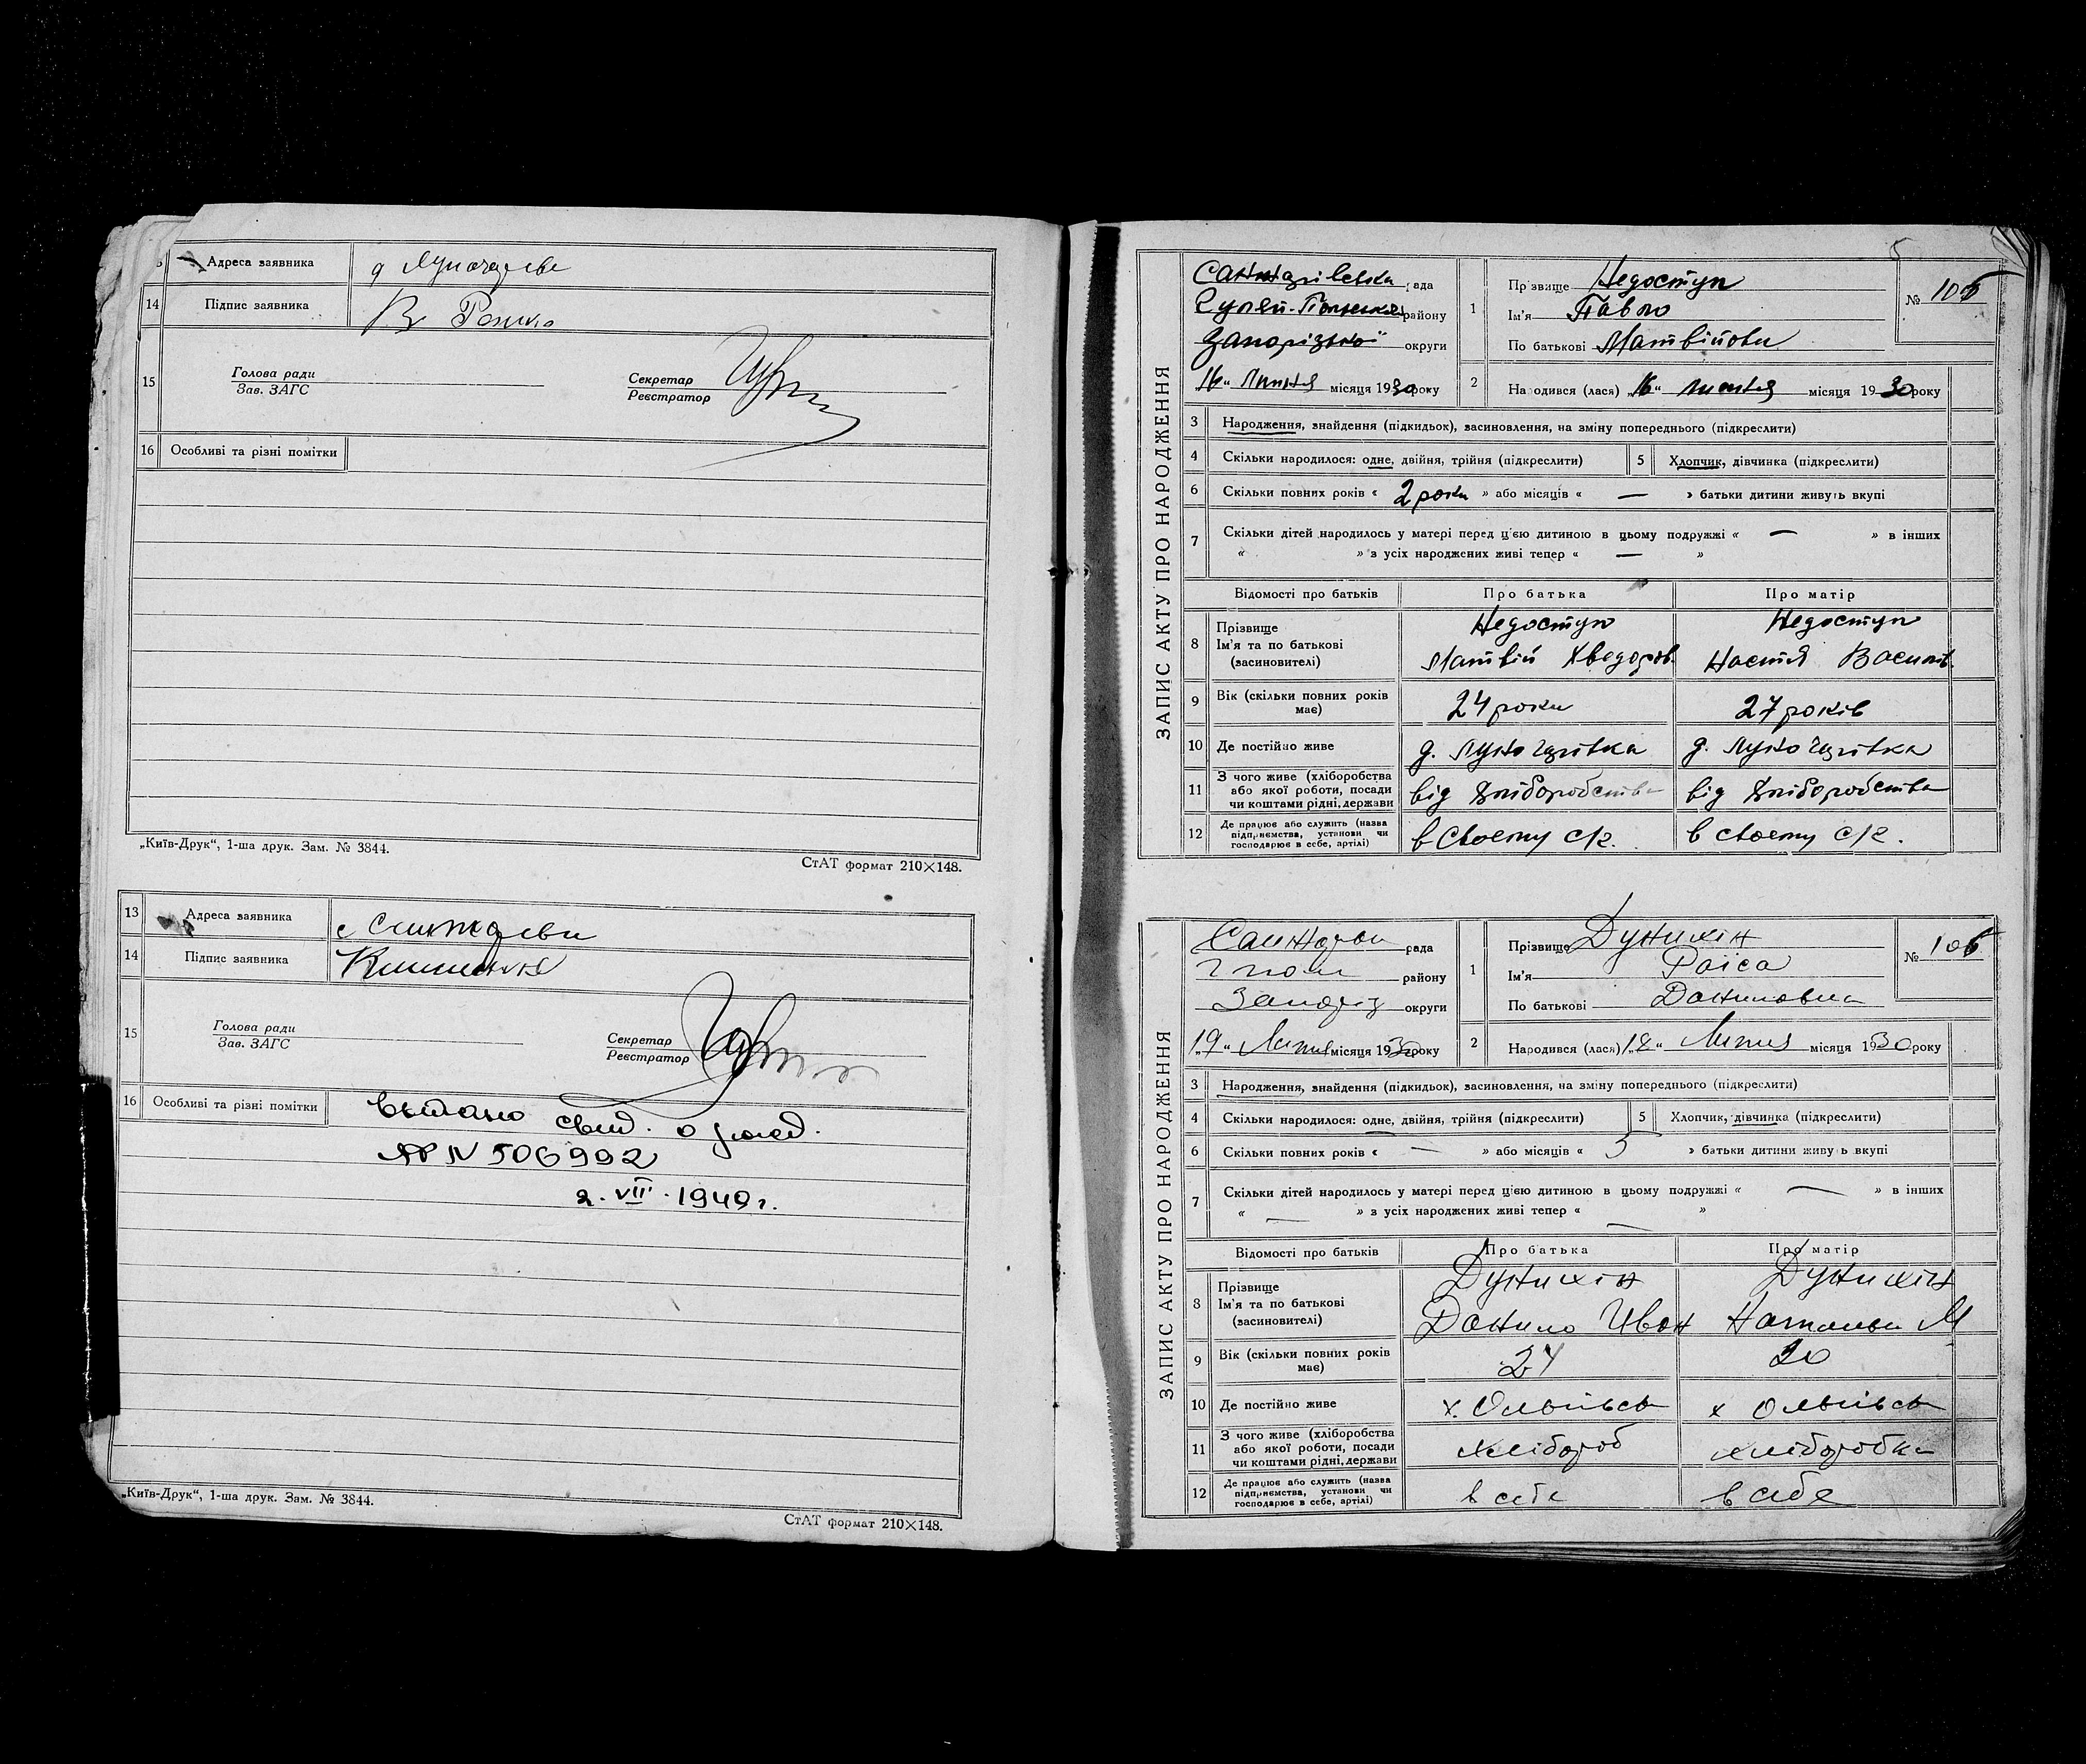 Адреса заявника
14 Підпис заявника В
15 Голова ради Секретар
Зав. ЗАГС Реєстратор
16 Особливі та різні помітки
„Київ-Друк“, 1-ша друк. Зам. № 3844.
СтАТ формат 210×148.
13 Адреса заявника
14 Підпис заявника
15 Голова ради Секретар
Зав. ЗАГС Реєстратор
16 Особливі та різні помітки
свид. о
№ 506992
2. VII. 1949 г.
„Київ-Друк“, 1-ша друк. Зам. № 3844.
СтАТ формат 210×148.
5
ЗАПИС АКТУ ПРО НАРОДЖЕННЯ
рада
району
Запорізької округи
„16“ Липня місяця 1930 року
1 Прізвище Недоступ
Ім'я Павло
По батькові Матвійови
№ 105
2 Народився (лася) „16“ липня місяця 1930 року
3 Народження, знайдення (підкидьок), засиновлення, на зміну попереднього (підкреслити)
4 Скільки народилося: одне, двійня, трійня (підкреслити) 5 Хлопчик, дівчинка (підкреслити)
6 Скільки повних років « 2 роки » або місяців « — » батьки дитини живуть вкупі
7 Скільки дітей народилось у матері перед цією дитиною в цьому подружжі « — » в інших
« » з усіх народжених живі тепер « — »
Відомості про батьків Про батька Про матір
8 Прізвище Недоступ Недоступ
Ім'я та по батькові Матвій Хведоров. Настя Василів
(засиновителі)
9 Вік (скільки повних років 24 роки 27 років
має)
10 Де постійно живе д. д.
11 З чого живе (хліборобства від хліборобства від хліборобства
або якої роботи, посади
чи коштами рідні, держави
12 Де працює або служить (назва в своєму с/г. в своєму с/г.
підприємства, установи чи
господарює в себе, артілі)
ЗАПИС АКТУ ПРО НАРОДЖЕННЯ
рада
району
Запоріз округи
„19“ Липня місяця 1930 року
1 Прізвище Дунихін
Ім'я Раїса
По батькові Даниловна
№ 106
2 Народився (лася) „18“ Липня місяця 1930 року
3 Народження, знайдення (підкидьок), засиновлення, на зміну попереднього (підкреслити)
4 Скільки народилося: одне, двійня, трійня (підкреслити) 5 Хлопчик, дівчинка (підкреслити)
6 Скільки повних років « — » або місяців « 5 » батьки дитини живуть вкупі
7 Скільки дітей народилось у матері перед цією дитиною в цьому подружжі « — » в інших
« — » з усіх народжених живі тепер « — »
Відомості про батьків Про батька Про матір
8 Прізвище Дунихін Дунихін
Ім'я та по батькові Данило Иван М
(засиновителі)
9 Вік (скільки повних років 24 20
має)
10 Де постійно живе х. х
11 З чого живе (хліборобства хлібороб хліборобка
або якої роботи, посади
чи коштами рідні, держави
12 Де працює або служить (назва в себе в себе
підприємства, установи чи
господарює в себе, артілі)